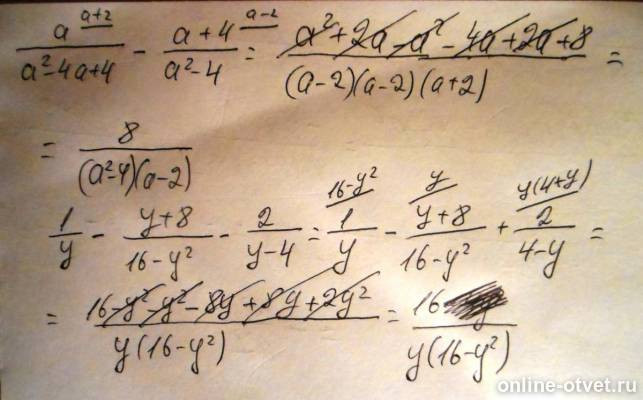 a^{a+2}/(a²-4a+4) - (a+4)^{a-2}/(a²-4) = (a²+2a-a²-4a+2a+8)/((a-2)(a-2)(a+2)) =
= 8/((a²-4)(a-2))
1/y - (y+8)/(16-y²) - 2/(y-4) = 1^{16-y²}/y - (y+8)^{y}/(16-y²) + 2^{y(4+y)}/(4-y) =
= (16-y²-y²-8y+8y+2y²)/(y(16-y²)) = 16/(y(16-y²))
online-otvet.ru